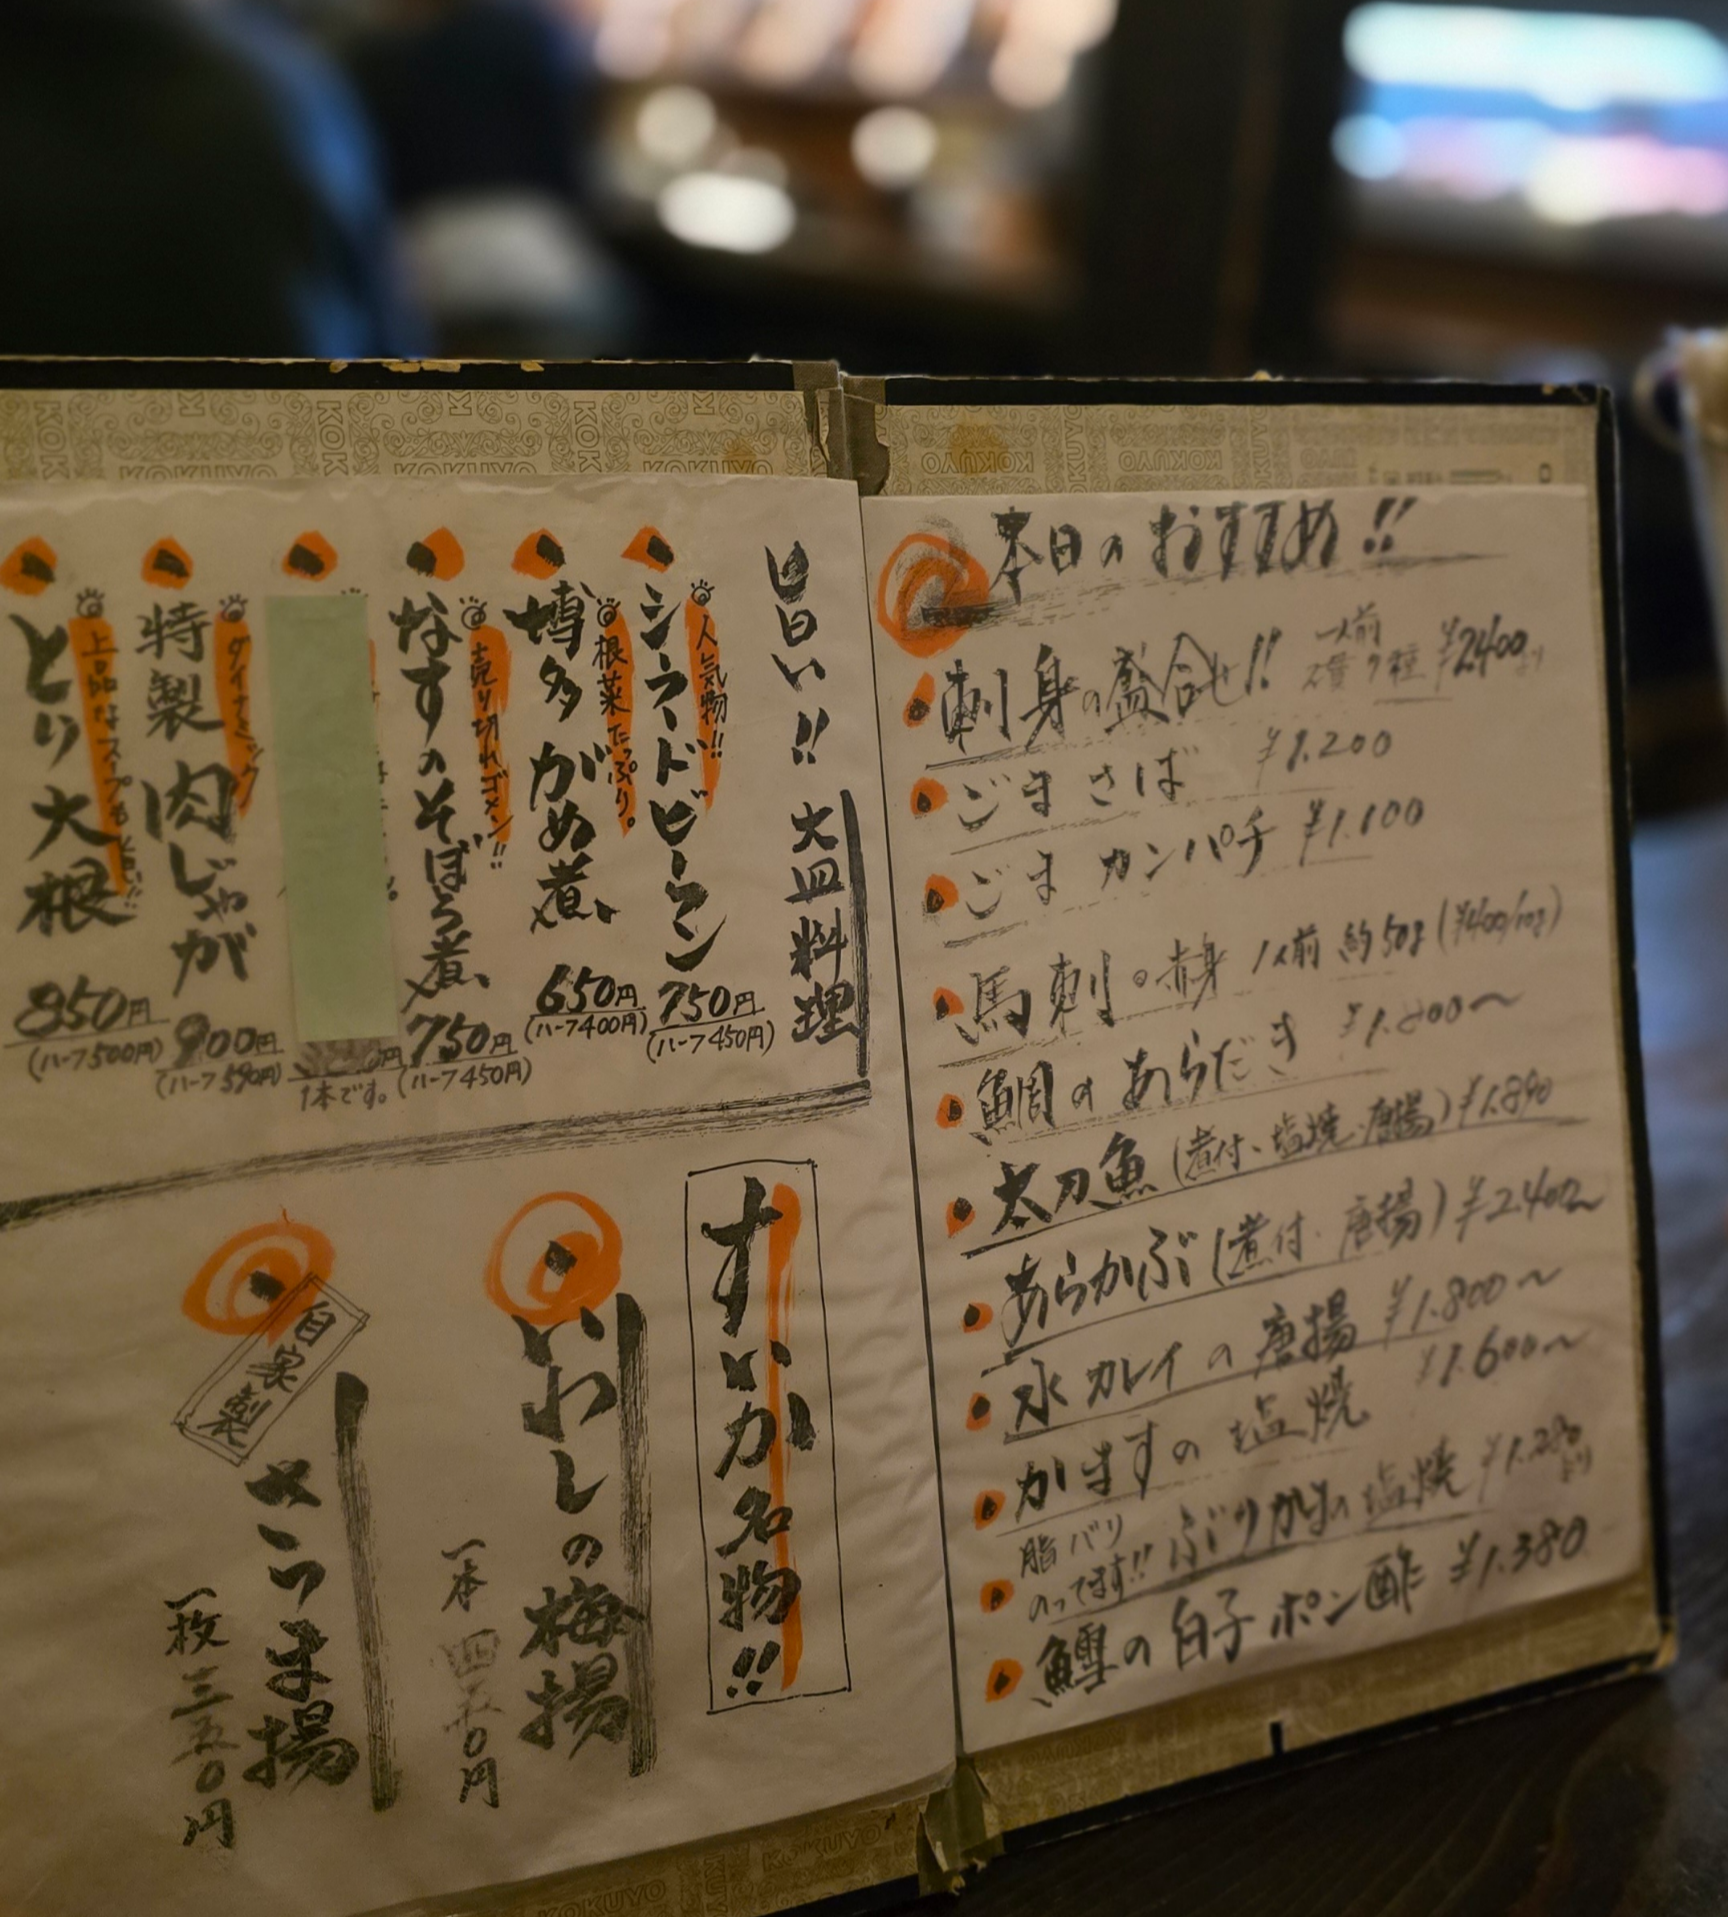 本日のおすすめ!!
刺身の盛合せ!! 一人前 7種 ¥2400より
ごまさば ¥1.200
ごまカンパチ ¥1.100
馬刺 赤身 1人前 約50g (¥400/10g)
鯛のあらだき ¥1.800〜
太刀魚 (煮付、塩焼、唐揚) ¥1.890
あらかぶ (煮付、唐揚) ¥2.400〜
水カレイの唐揚 ¥1.800〜
かますの塩焼 ¥1.600〜
脂バリのってます!! ぶりかまの塩焼 より
鱈の白子ポン酢 ¥1.380
旨い!! 大皿料理
人気物!!
シーフードビーフン
750円
(ハーフ450円)
根菜たっぷり。
博多がめ煮、
650円
(ハーフ400円)
売り切れゴメン!!
なすのそぼろ煮、
750円
(ハーフ450円)
1本です。
ダイナミック
特製肉じゃが
900円
上品なスープも旨い!!
とり大根
850円
(ハーフ500円)
すいか名物!!
いわしの梅揚
一本 四五〇円
自家製
さつま揚
一枚 三五〇円
KOKUYO